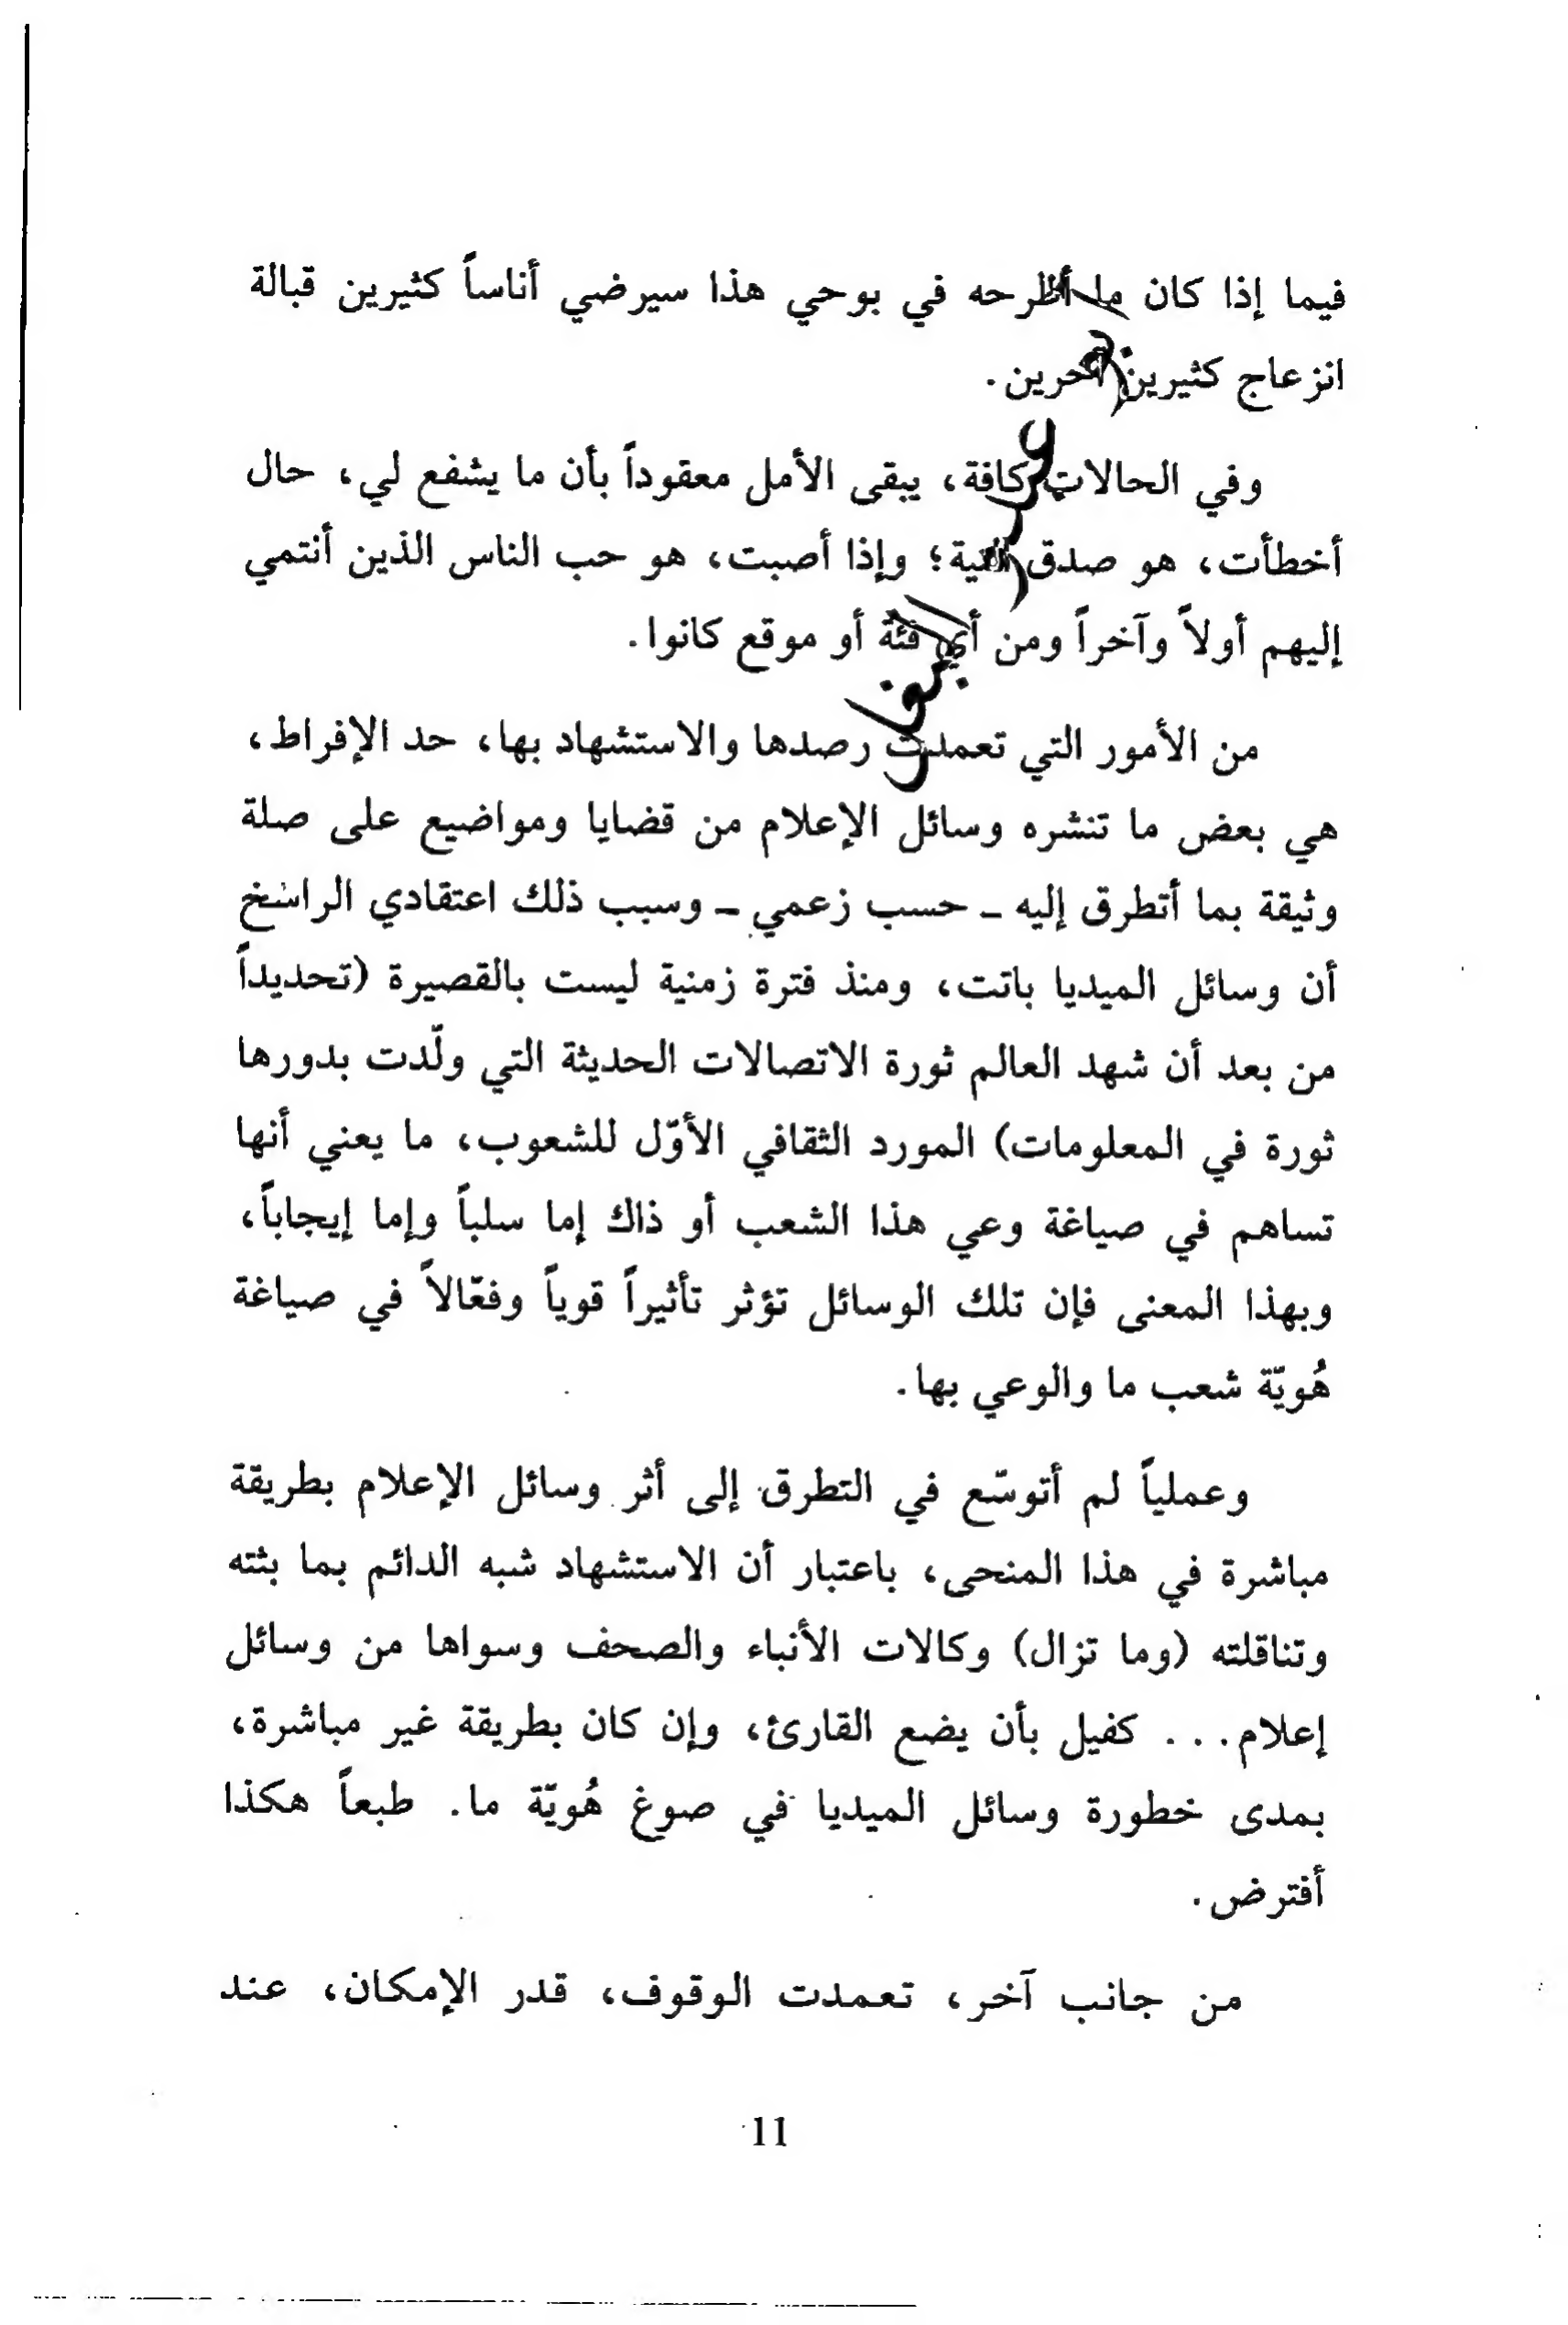 فيما إذا كان ما أطرحه في بوحي هذا سيرضي أناساً كثيرين قبالة
انزعاج كثيرين آخرين.
وفي الحالات كافة، يبقى الأمل معقوداً بأن ما يشفع لي، حال
أخطأت، هو صدق النية؛ وإذا أصبت، هو حب الناس الذين أنتمي
إليهم أولاً وآخراً ومن أي فئة أو موقع كانوا.
من الأمور التي تعمدت رصدها والاستشهاد بها، حد الإفراط،
هي بعض ما تنشره وسائل الإعلام من قضايا ومواضيع على صلة
وثيقة بما أتطرق إليه ـ حسب زعمي ـ وسبب ذلك اعتقادي الراسخ
أن وسائل الميديا باتت، ومنذ فترة زمنية ليست بالقصيرة (تحديداً
من بعد أن شهد العالم ثورة الاتصالات الحديثة التي ولّدت بدورها
ثورة في المعلومات) المورد الثقافي الأوّل للشعوب، ما يعني أنها
تساهم في صياغة وعي هذا الشعب أو ذاك إما سلباً وإما إيجاباً،
وبهذا المعنى فإن تلك الوسائل تؤثر تأثيراً قوياً وفعّالاً في صياغة
هُويّة شعب ما والوعي بها.
وعملياً لم أتوسّع في التطرق إلى أثر وسائل الإعلام بطريقة
مباشرة في هذا المنحى، باعتبار أن الاستشهاد شبه الدائم بما بثته
وتناقلته (وما تزال) وكالات الأنباء والصحف وسواها من وسائل
إعلام... كفيل بأن يضع القارئ، وإن كان بطريقة غير مباشرة،
بمدى خطورة وسائل الميديا في صوغ هُويّة ما. طبعاً هكذا
أفترض.
من جانب آخر، تعمدت الوقوف، قدر الإمكان، عند
11